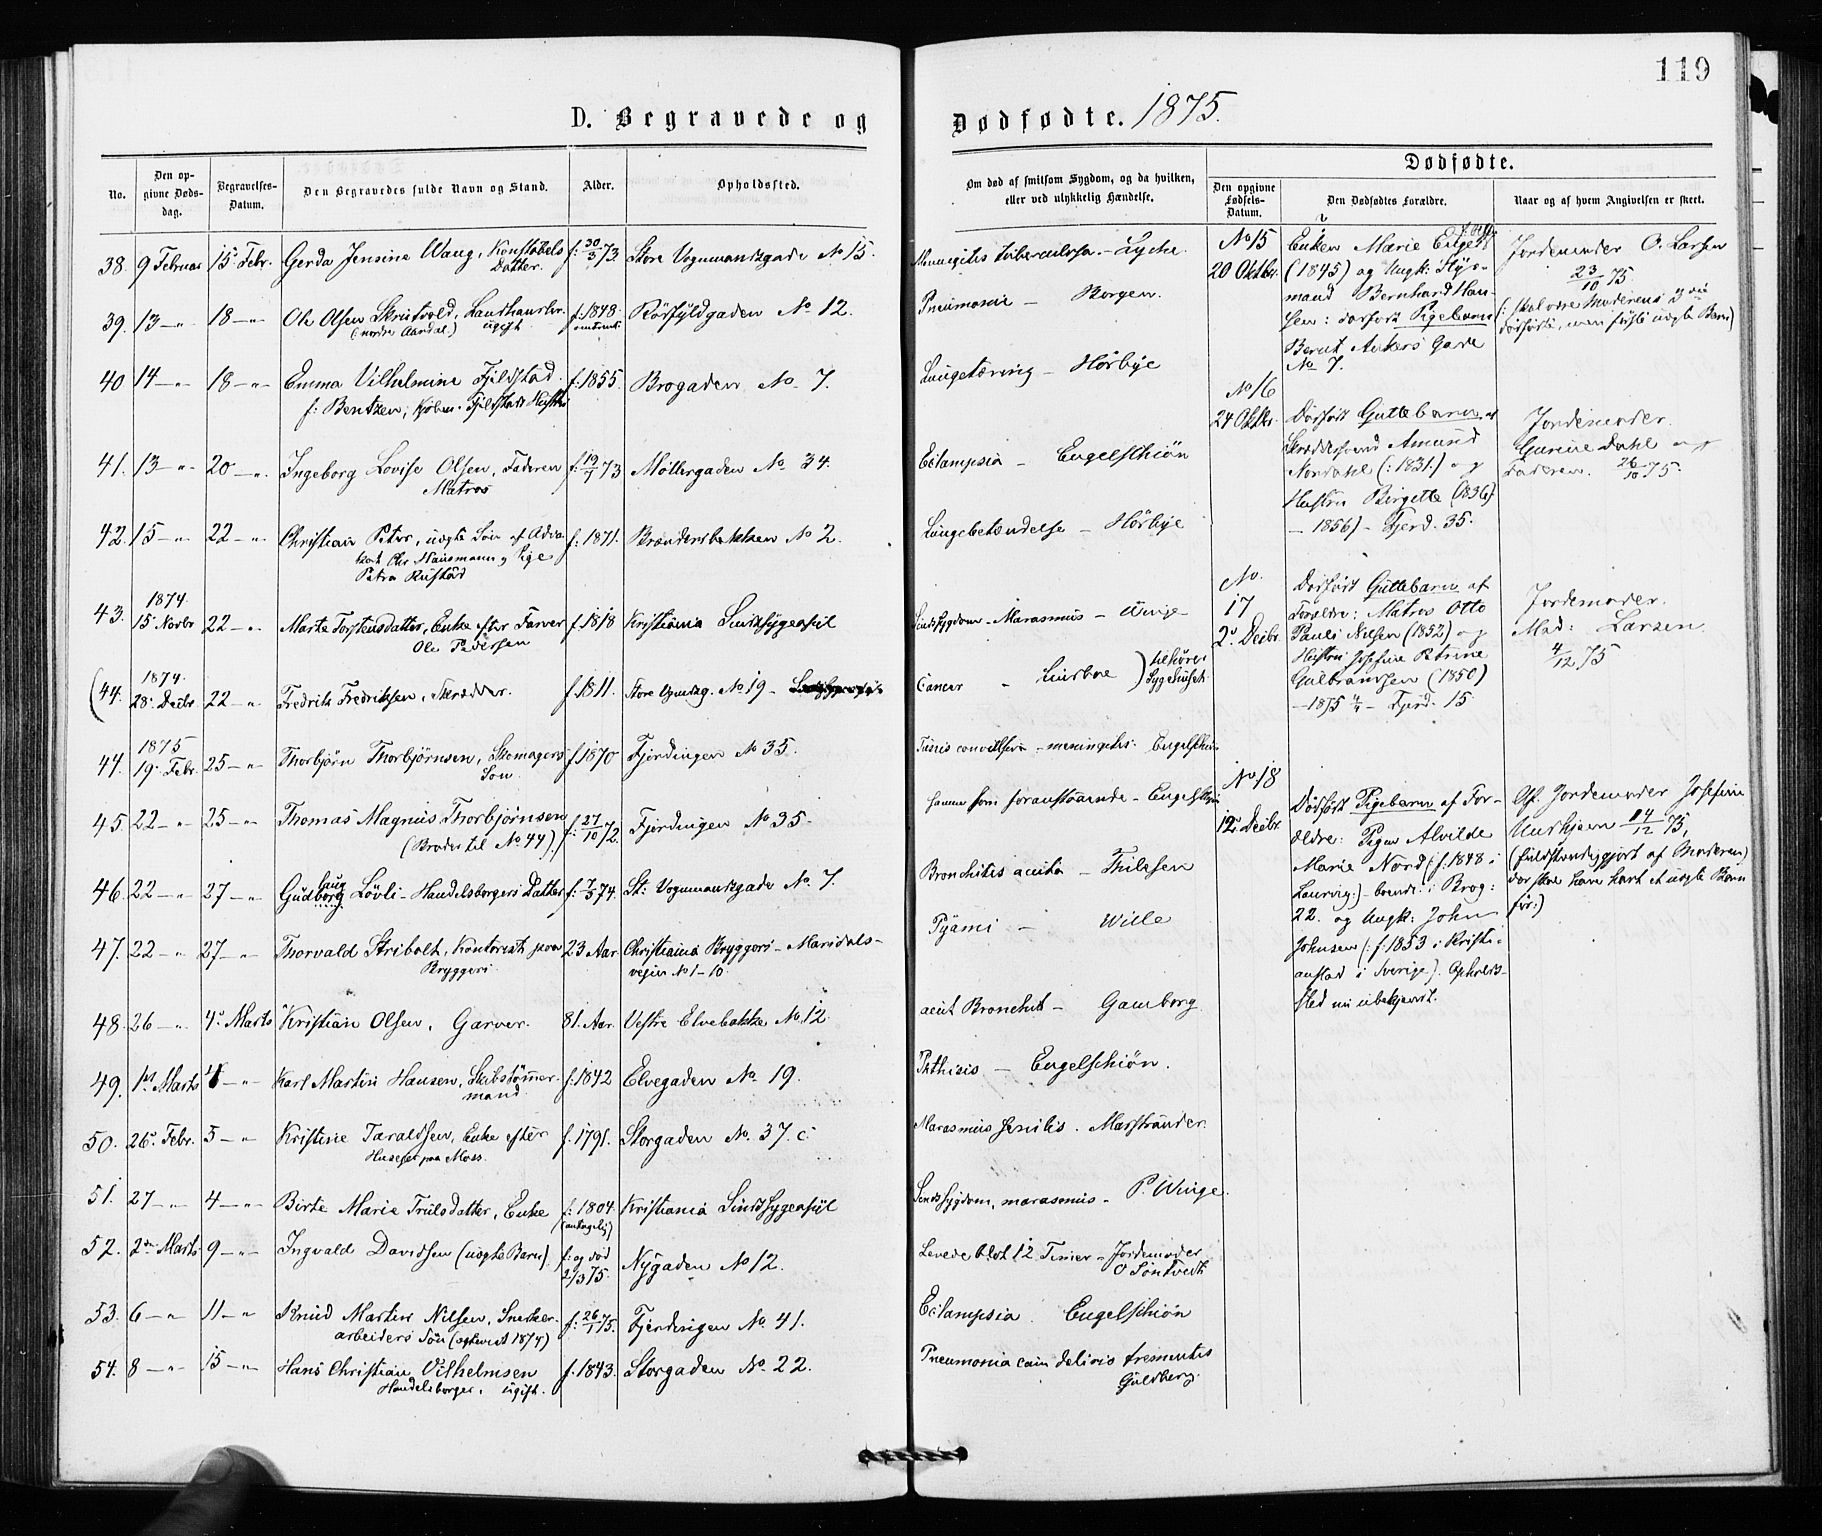 119
D. Begravede og Dødfødte. 1875.
No.
Den opgivne Dødsdag.
Begravelses-Datum.
Den Begravedes fulde Navn og Stand.
Alder.
Opholdssted.
Om død af smitsom Sygdom, og da hvilken, eller ved ulykkelig Hændelse.
38. 9 Februar 15 Febr. Gerda Jensine Waug, Konstabels f: 30/3 73 Store Vognmandsgade No 15. Meningitis tuberculosa - Lyche.
Datter.
39. 13 - " 18 - " Ole Olsen Skrutvold, f: 1848 No 12. Pneumonie - Borgen.
(nordre Aardal.) ugift. omtrent
40 14 - " 18 - " Emma Vilhelmine Fjeldstad f: 1855. Brogaden No 7. Lungetæring - Hörbye
f: Bentzen, Kjøbm. Fjeldstads Hustru
41. 13 - " 20 - " Ingeborg Lovise Olsen, Faderen f: 19/1 73 Møllergaden No 34. Eclampsia - Engelschiøn
Matros
42. 15 - " 22 - " Christian Peter, uægte Søn af Advo- f: 1871. Brænderibakken No 2. Lungebetændelse - Hörbye
kat Chr Hausmann og Pige
Petra Rustad
1874
43. 15 Novbr 22 - " Marte Torstensdatter, Enke efter Farver f: 1818 Kristiania Sindssygeasyl Sindssygdom - Marasmus - Winge
Ole Pedersen
1874
(44. 28 Decbr. 22 - " Fredrik Fredriksen, Skrædder. f 1811. Store Vgmdsg. No 19 - Cancer - ) tilhører
Sygehuset.
1875
44. 19 Febr. 25 - " Thorbjørn Thorbjørnsen, Skomagers f 1870 Fjerdingen No 35. Tussis convulsiva - meningitis. Engelschiøn
Søn.
45. 22 - " 25 - " Thomas Magnus Thorbjørnsen f: 27/10 72. Fjerdingen No 35. samme som foranstaaende - Engelschiøn
(Broder til No 44)
46. 22 - " 27 - " Gudborg Lövli - Handelsborgers Datter f: 7/3 74. St: Vognmandsgade No 7. Bronchitis acuta - Thilesen
47. 22 - " 27 - " Thorvald Skribolt, Kontorist paa 23 Aar. Christiania Bryggeri - Maridals- Pyämi - Wille
Bryggeri. veien No 1-10.
48. 26 - " 4. Marts Kristian Olsen, Garver. 81. Aar. Vestre Elvebakke No 12. acut Bronchit - Gamborg
49. 1st Marts 4 - " Karl Martin Hansen, Skibstømmer- f: 1842 Elvegaden No 19. Phthisis - Engelschiøn.
mand.
50. 26. Febr. 5 - " Kristine Taraldsen, Enke efter f. 1791. Storgaden No. 37. c. Marasmus senilis. Marstrander.
Huseier paa Moss.
51. 27 - " 4 - " Birte Marie Trulsdatter, Enke f: 1804. Kristiania Sindssygeasyl Sindssygdom, marasmus - P. Winge.
(antagelig)
52. 2den Marts 9 - " Ingvald Davidsen (uægte Barn). f: og død Nygaden No 12. Levede blot 12 Timer - Jordemoder
2/3 75. O Söntvedt
53. 6 - " 11 - " Knud Martin Nilsen, Snekker- f: 26/1 75. Fjerdingen No 41. Eclampsia. Engelschiøn
arbeiders Søn (ægteviet 1874)
54. 8 - " 15 - " Hans Christian Vilhelmsen f: 1843. Storgaden No. 22. Pneumonia cum delirio trementis
Handelsborger, ugift. Guldberg.
Dødfødte.
Den opgivne Fødsels-Datum.
Den Dødfødtes Forældre.
Naar og af hvem Angivelsen er skeet.
No 15
20 Oktbr.
Enken Marie
(1845) og Ungk: Styr-
mand Bernhard Han-
sen: dødfødt Pigebarn
Bernt Ankers Gade
No 7.
Jordemoder O. Larsen
23/10 75.
(: skal være Moderens
dødfødte, men første uægte Barn)
No 16
24 Oktbr.
Dødfødt Guttebarn af
Skræddersvend Amund
Nordahl (: 1831.) og
Hustru Birgitte (1836)
- 1856) - Fjerd. 35.
Jordemoder.
Gurine Dahl og
Faderen. 26/10 75.
No.
17
2. Decbr.
Dødfødt Guttebarn af
Forældre: Matros Otto
Pauli Nilsen (1852) og
Hustru Josefine Petrine
Gulbrandsen (1850)
- 1875 - Fjerd. 15.
Jordemoder.
Mad: Larsen.
4/12 75
No 18
12. Decbr.
Dødfødt Pigebarn af For-
ældre: Pigen Alvilde
Marie Nord (f: 1848 i
Laurvig:) boende i Brog:
22. og Ungk: John
Johnsen (: f: 1853 i Kristi-
anstad i Sverige). Opholds-
sted nu ubekjendt.
Af Jordemoder Josefine
14/12 75,
(fuldstændiggjort af Moderen)
der skal have havt et uægte Barn
før:)